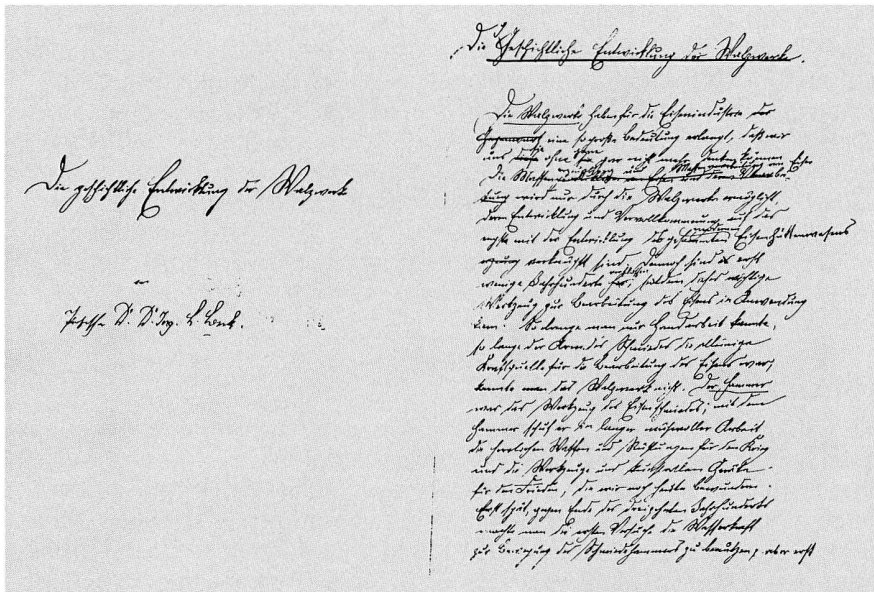 Die geschichtliche Entwicklung der Walzwerke
von
Professor Dr. Dr. Ing. L. Beck.
Die Geschichtliche Entwicklung der Walzwerke.
Die Walzwerke haben für die Eisenindustrie der
Gegenwart eine so große Bedeutung erlangt, daß wir
uns diese ohne sie gar nicht mehr denken können
Die Massenerzeugung und Massenverarbeitung von Eisen
wird nur durch die Walzwerke ermöglicht,
deren Entwicklung und Vervollkommnung auf das
engste mit der Entwicklung des gesammten modernen Eisenhüttenwesens
verknüpft sind. Dennoch sind es erst
wenige Jahrhunderte, seitdem dieses wichtige
Werkzeug zur Bearbeitung des Eisens in Anwendung
kam. So lange man nur Handarbeit kannte,
so lange der Arm des Schmiedes die alleinige
Kraftquelle für die Bearbeitung des Eisens war,
kannte man das Walzwerk nicht. Der Hammer
war das Werkzeug des Eisenschmiedes; mit dem
Hammer schuf er in langer mühevoller Arbeit
die herrlichen Waffen und Rüstungen für den Krieg
und die Werkzeuge und kunstvollen Geräte
für den Frieden, die wir noch heute bewundern.
Erst spät, gegen Ende des dreizehnten Jahrhunderts
machte man die ersten Versuche die Wasserkraft
zur Bewegung des Schmiedehammers zu benutzen, aber erst